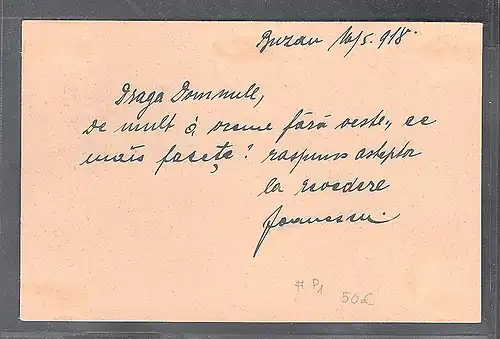 Buzau 10/5.918.
Draga Domnule,
De mult ó vreme fără veste, ce
mais faceţe? raspuns asteptor
la revedere
Joanescu.
# P1
50€